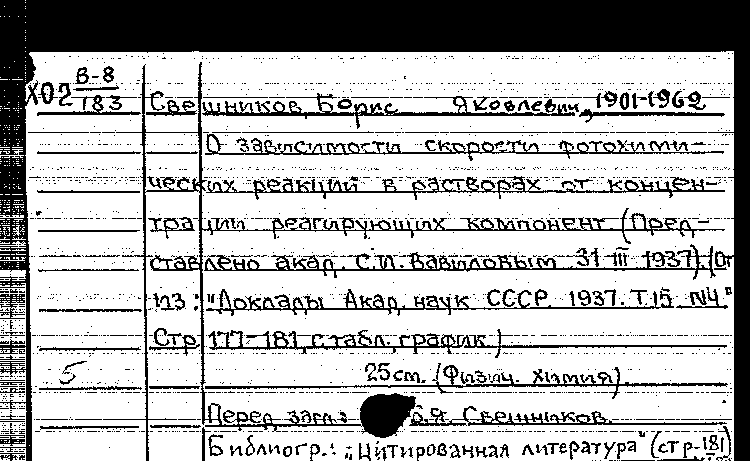 Х02 В-8/183
Свешников, Борис Яковлевич, 1901-1962
О зависимости скорости фотохими-
ческих реакций в растворах от концен-
трации реагирующих компонент (Пред-
ставлено акад. С.И. Вавиловым 31 III 1937). (От
из: "Доклады Акад. наук СССР. 1937. Т.15. №4."
Стр 177-181, с табл. график.)
5 25 см. (Физич. химия).
Перед загл.: Б.Я. Свешников.
Библиогр.: "Цитированная литература" (стр-181)